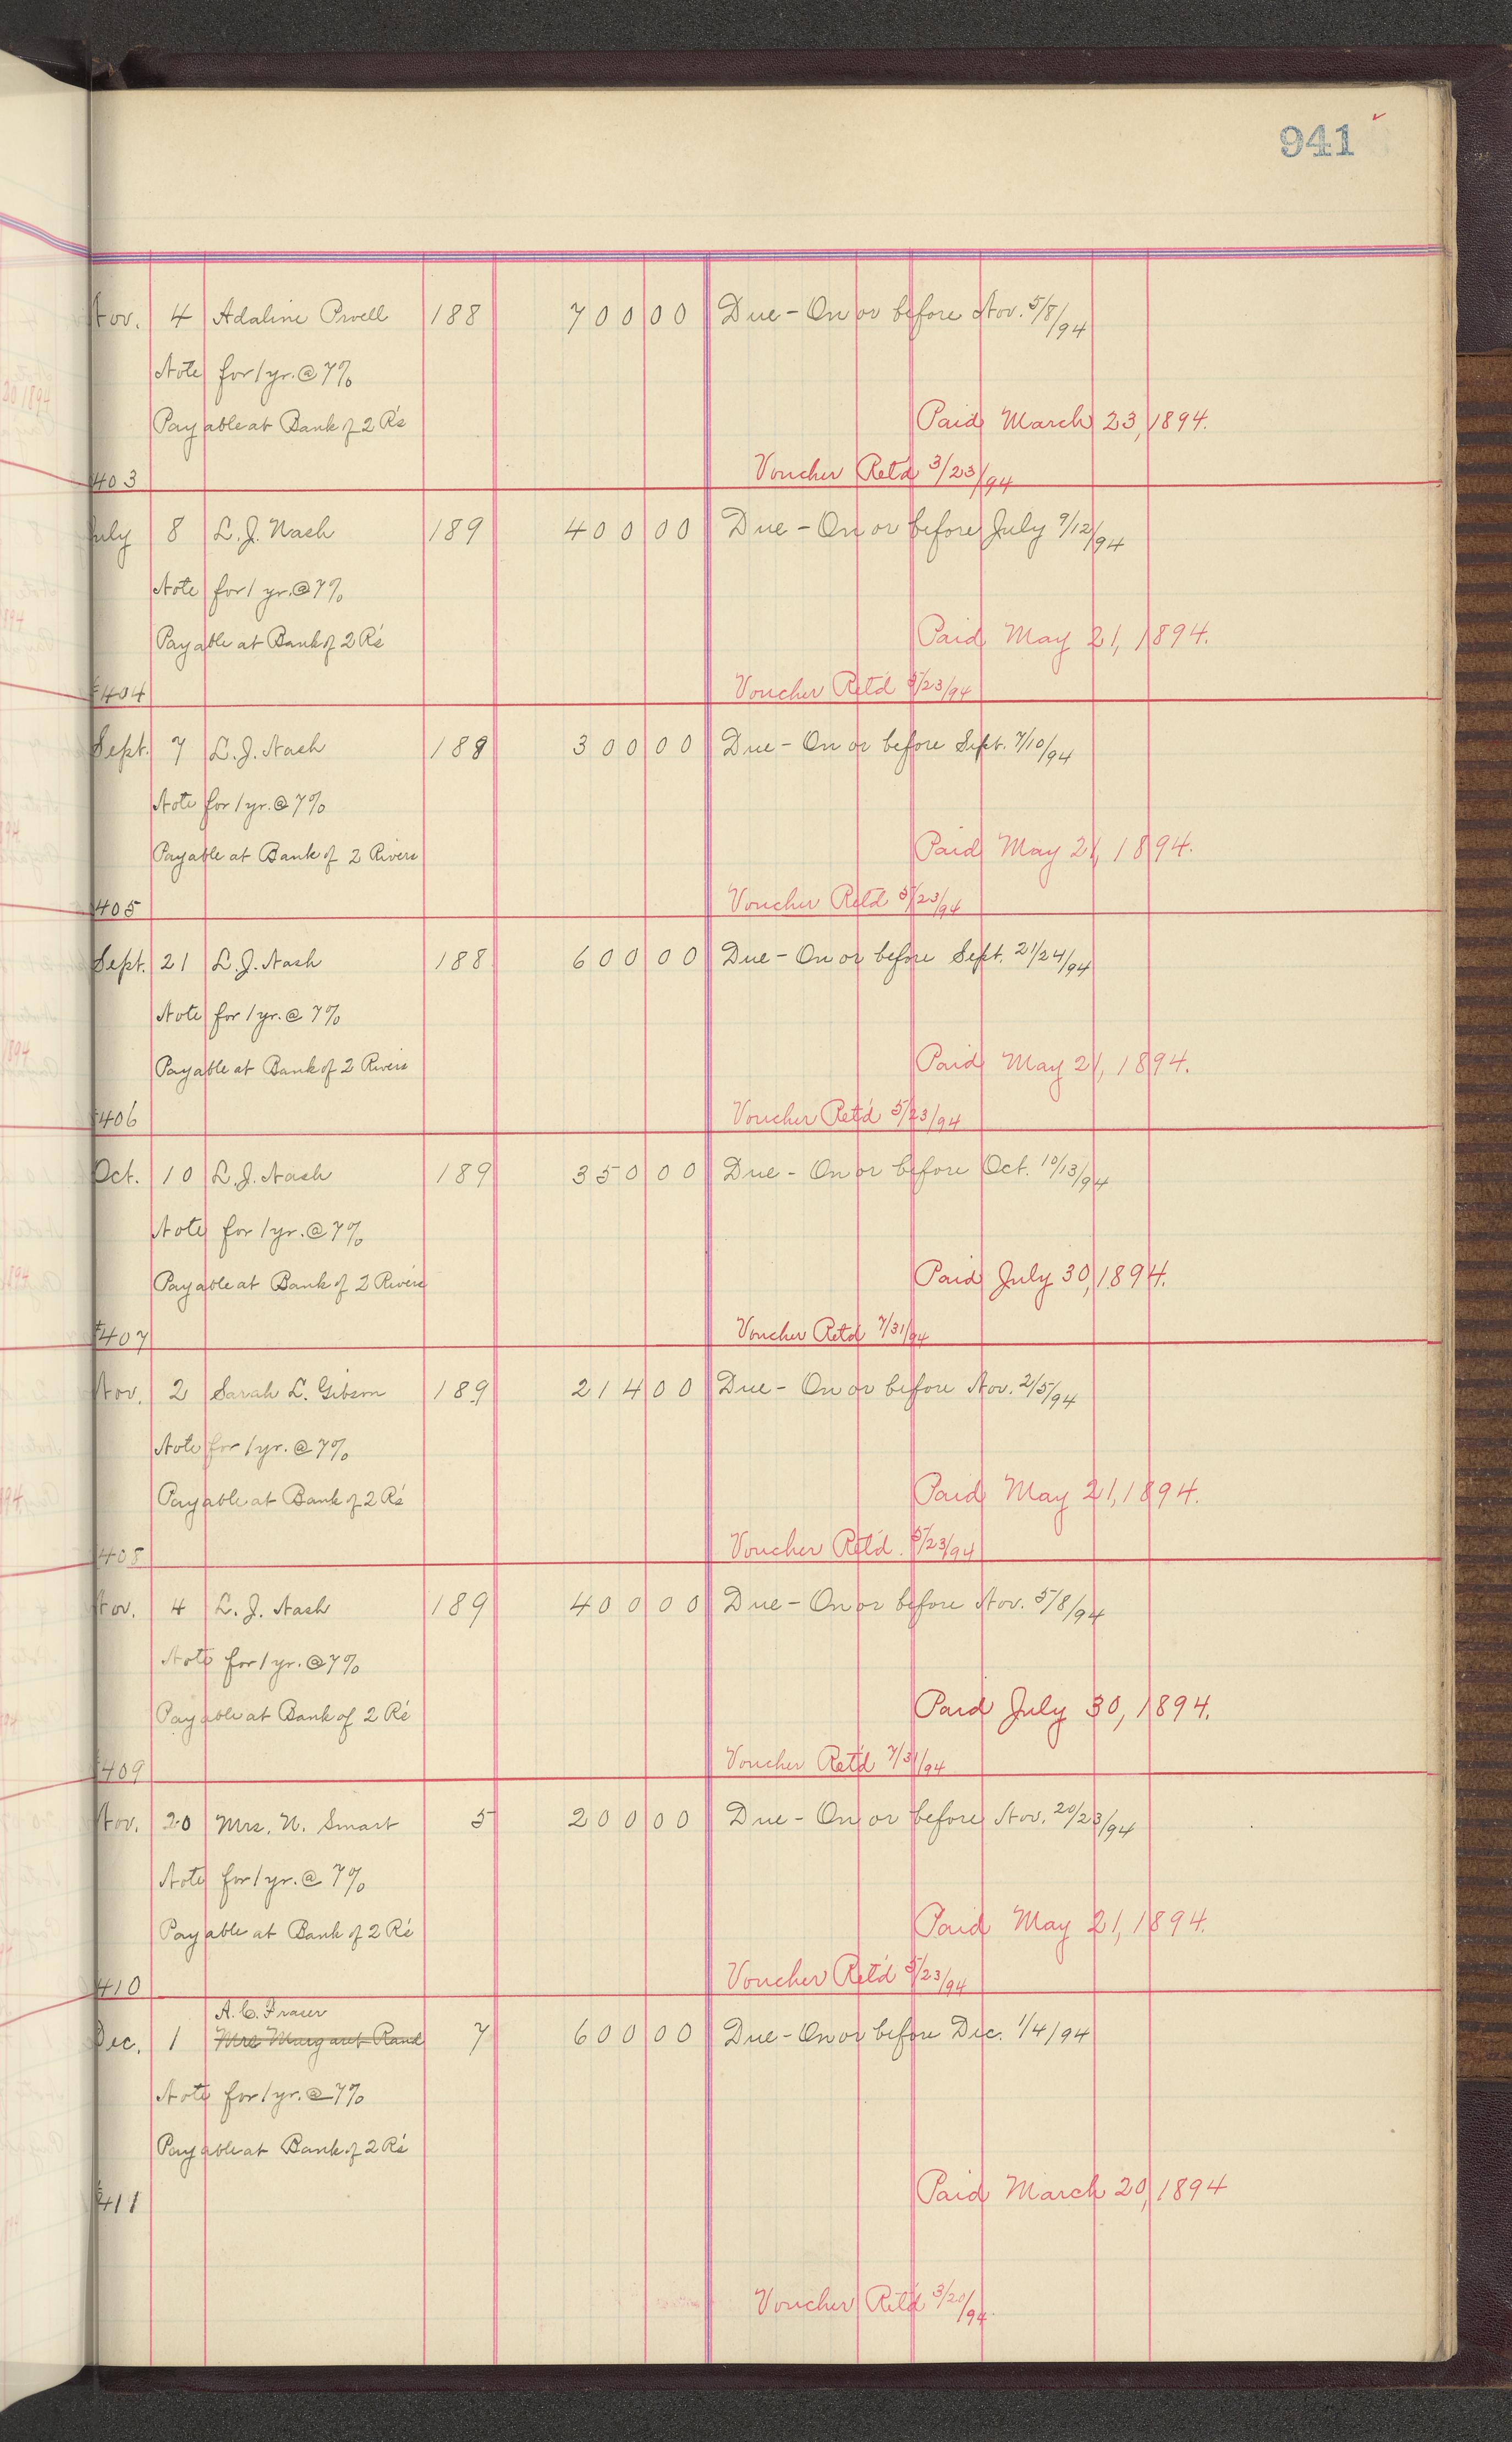 941
Nov. 4 Adaline Powell 188 700 00 Due - On or before Nov. 5/8/94
Note for 1 yr. @ 7%
Payable at Bank of 2 Rs
Paid March 23, 1894.
403 Voucher Retd 3/23/94
July 8 L. J. Nash 189 400 00 Due - On or before July 9/12/94
Note for 1 yr. @ 7%
Payable at Bank of 2 Rs
Paid May 21, 1894.
404 Voucher Retd 5/23/94
Sept. 7 L. J. Nash 188 300 00 Due - On or before Sept. 7/10/94
Note for 1 yr. @ 7%
Payable at Bank of 2 Rivers
Paid May 21, 1894.
405 Voucher Retd 5/23/94
Sept. 21 L. J. Nash 188 600 00 Due - On or before Sept. 21/24/94
Note for 1 yr. @ 7%
Payable at Bank of 2 Rivers
Paid May 21, 1894.
406 Voucher Ret'd 5/23/94
Oct. 10 L. J. Nash 189 350 00 Due - On or before Oct. 10/13/94
Note for 1 yr. @ 7%
Payable at Bank of 2 Rivers
Paid July 30, 1894.
407 Voucher Retd 7/31/94
Nov. 2 Sarah L. Gibson 189 214 00 Due - On or before Nov. 2/5/94
Note for 1 yr. @ 7%
Payable at Bank of 2 Rs
Paid May 21, 1894.
408 Voucher Ret'd. 5/23/94
Nov. 4 L. J. Nash 189 400 00 Due - On or before Nov. 5/8/94
Note for 1 yr. @ 7%
Payable at Bank of 2 Rs
Paid July 30, 1894.
409 Voucher Ret'd 7/31/94
Nov. 20 Mrs. N. Smart 5 200 00 Due - On or before Nov. 20/23/94
Note for 1 yr. @ 7%
Payable at Bank of 2 Rs
Paid May 21, 1894.
410 Voucher Ret'd 5/23/94
A. C. Fraser
Dec. 1 Mrs Margaret Rand 7 600 00 Due - On or before Dec. 1/4/94
Note for 1 yr. @ 7%
Payable at Bank of 2 Rs
411 Paid March 20, 1894
Voucher Retd 3/20/94.